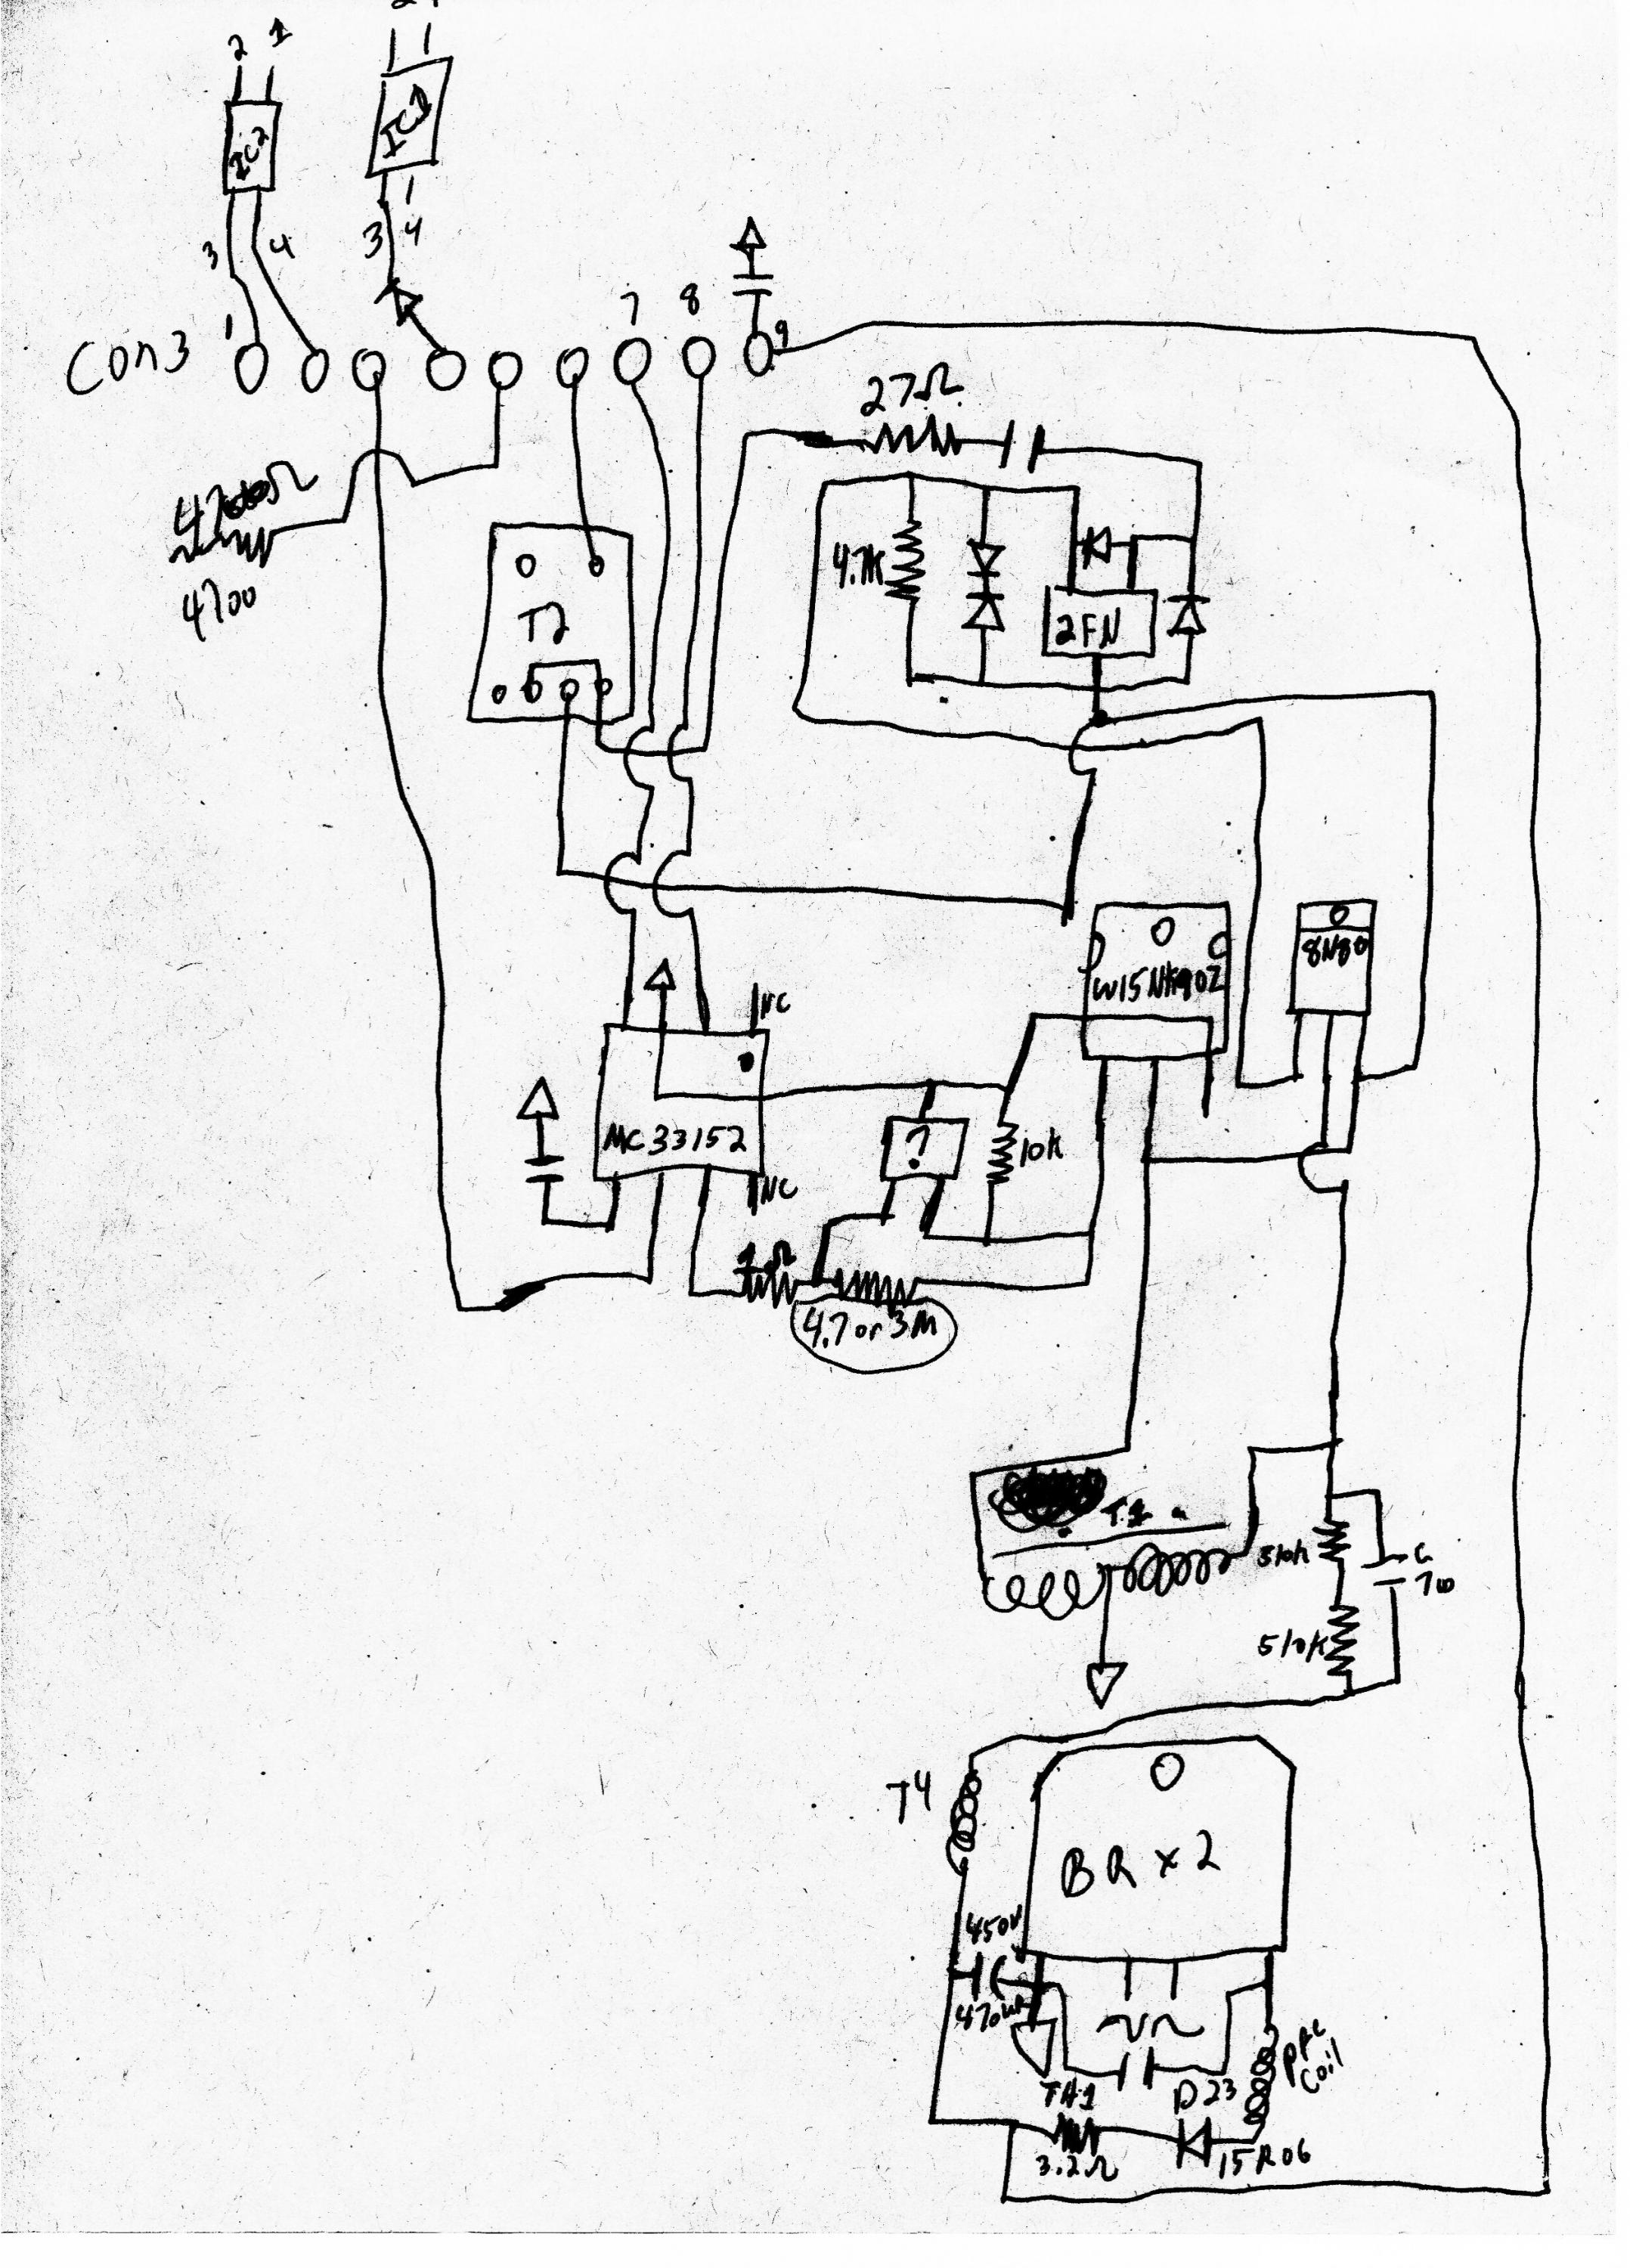 2 1
2 1
IC2
IC1
3 4
3 4
7 8
9
Con3
1
27Ω
4700
4.7K
2FN
T2
8N80
W15NK90Z
NC
MC33152
?
10K
NC
4.7 or 3M
T1
510k
C
510K
T4
BR x 2
450V
470uF
PFC
Coil
TH1
D23
3.2Ω
15R06